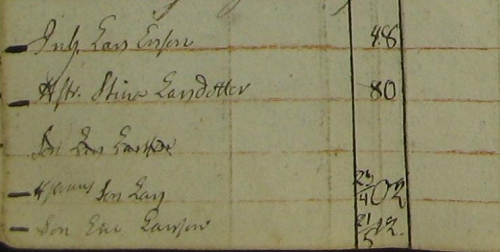 Inh. Lars Ersson 48
Hstr. Stina Larsdotter 80
Son Lars Larsson
Son Lars 23/4 02
Son Eric Larsson 21/5 12.